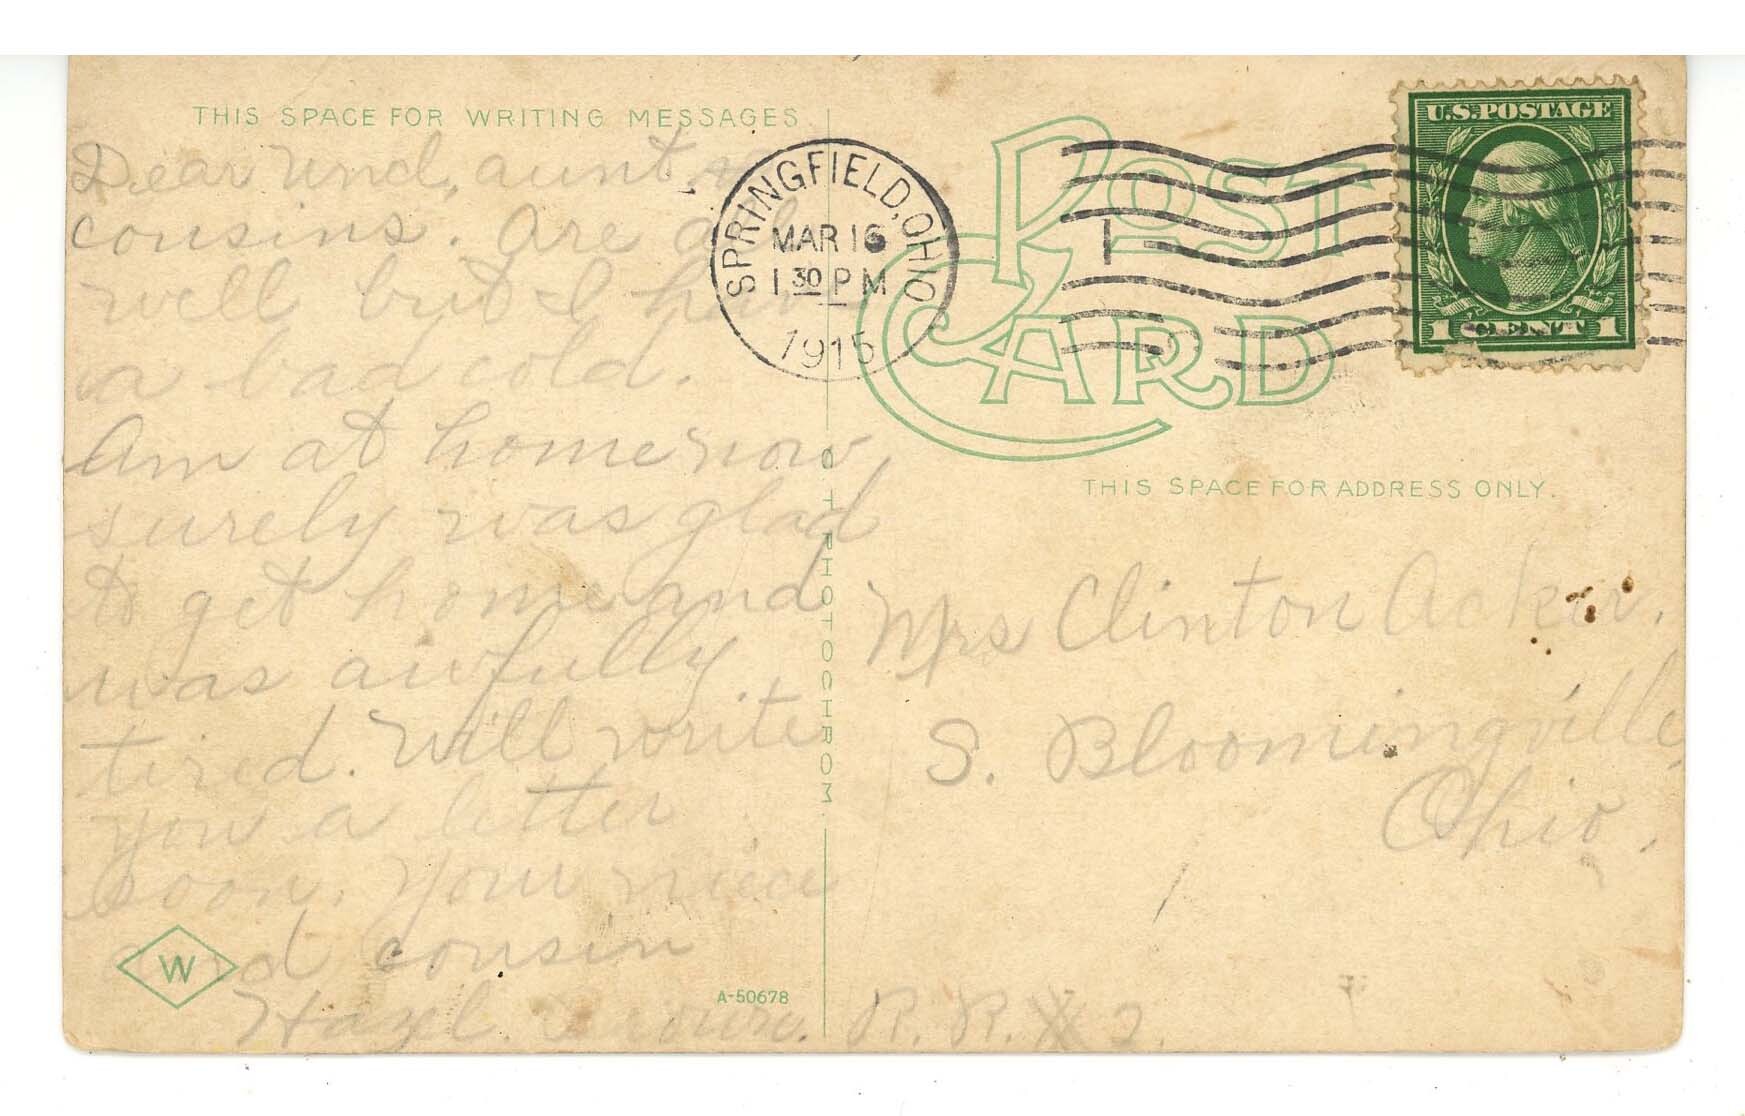 THIS SPACE FOR WRITING MESSAGES
Dear Uncl, aunt
cousins. Are all
well but I have
a bad cold.
Am at home now,
surely was glad
to get home and
was awfully
tired. Will write
you a letter
soon. Your niece
and cousin
Hazel Brown.
W
A-50678
O. T. PHOTOCHROM
SPRINGFIELD, OHIO
MAR 16
1 30 PM
1915
POST CARD
U.S. POSTAGE
1 CENT 1
THIS SPACE FOR ADDRESS ONLY.
Mrs Clinton Acker.
S. Bloomingville,
Ohio.
R. R. # 2.